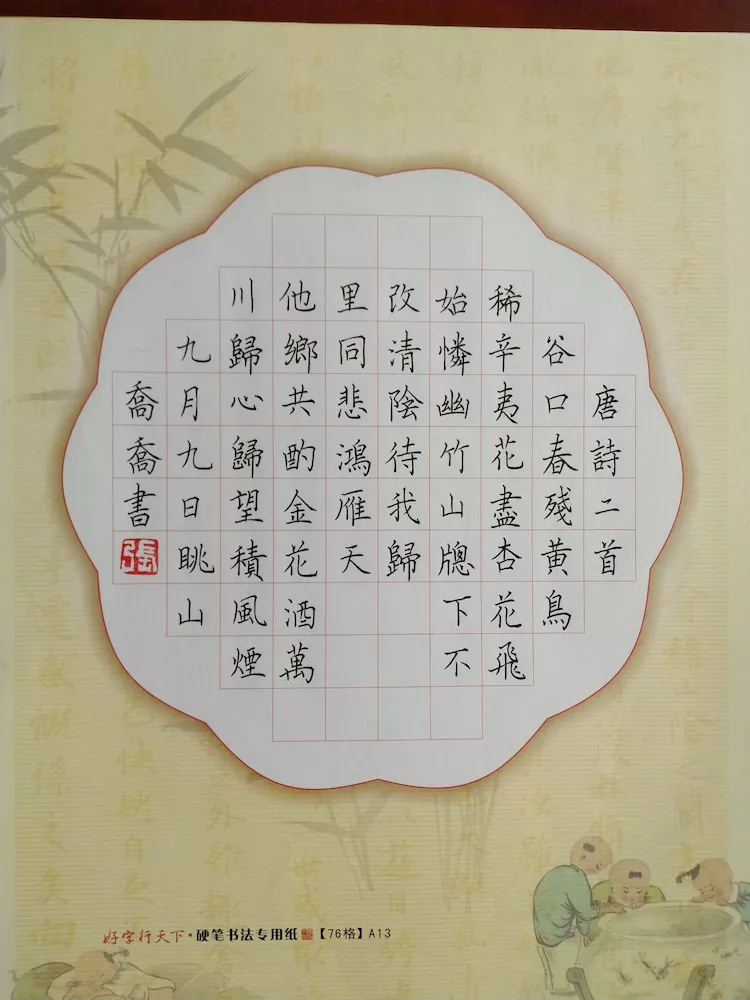 唐詩二首
谷口春殘黄鳥
稀辛夷花盡杏花飛
始憐幽竹山牕下不
改清陰待我歸
里同悲鴻雁天
他鄉共酌金花酒萬
川歸心歸望積風煙
九月九日眺山
喬喬書
張
好字行天下·硬笔书法专用纸【76格】A13